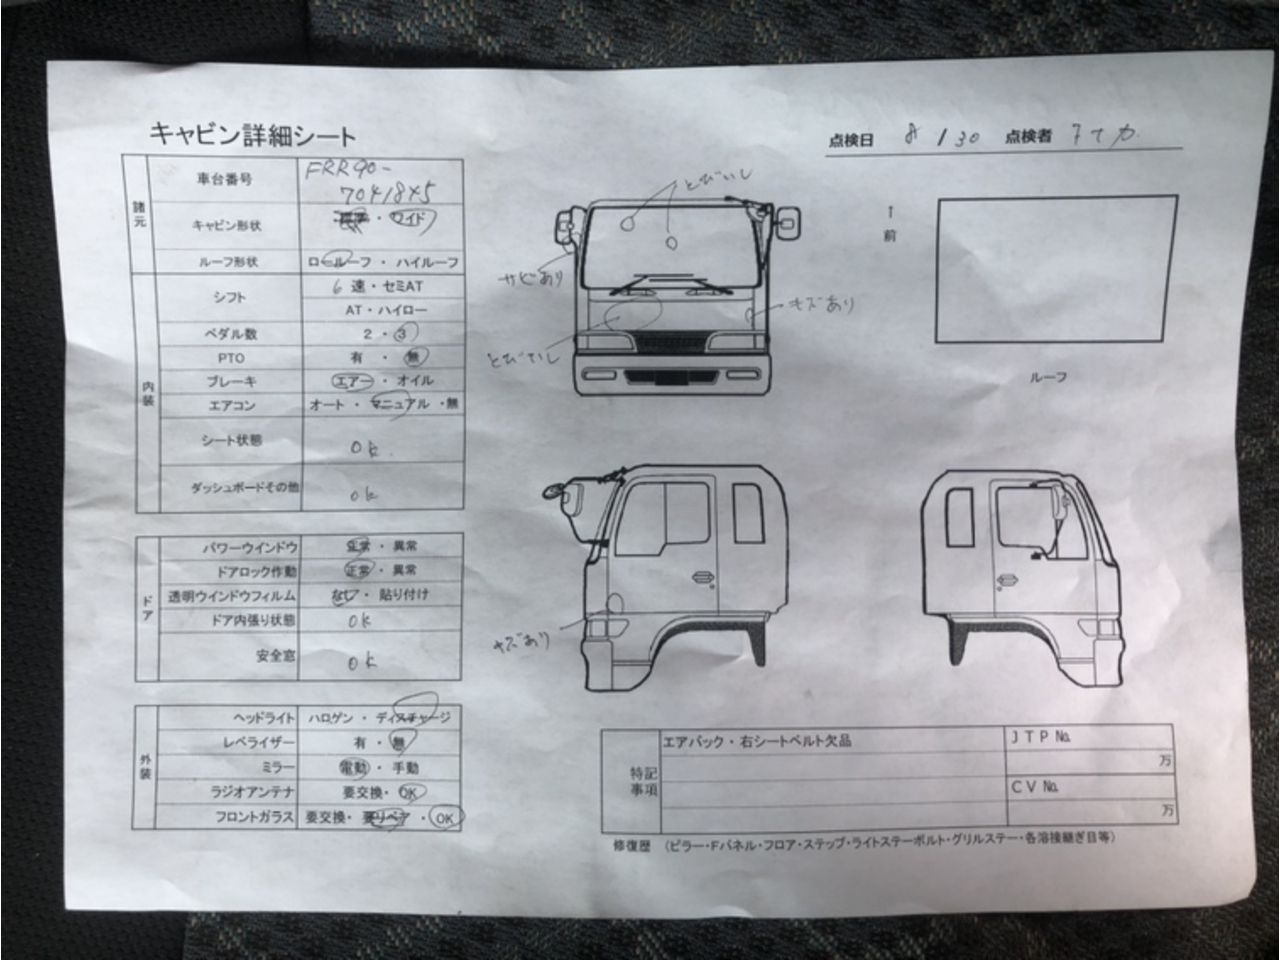 キャビン詳細シート
点検日 8/30 点検者
諸元
車台番号 FRR90-
7041845
キャビン形状 ・ ワイド
ルーフ形状 ロールーフ・ハイルーフ
内装
シフト 6 速・セミAT
AT・ハイロー
ペダル数 2 ・ 3
PTO 有 ・ 無
ブレーキ エアー・オイル
エアコン オート・マニュアル・無
シート状態 ok.
ダッシュボードその他 ok
ドア
パワーウインドウ 正常・異常
ドアロック作動 正常・異常
透明ウインドウフィルム なし・貼り付け
ドア内張り状態 ok
安全窓 ok
外装
ヘッドライト ハロゲン・ディスチャージ
レベライザー 有・無
ミラー 電動・手動
ラジオアンテナ 要交換・OK
フロントガラス 要交換・要リペア・OK
とびいし
サビあり
キズあり
とびいし
↑
前
ルーフ
キズあり
特記事項
エアバック・右シートベルト欠品
JTP№
万
CV№
万
修復歴 (ピラー・Fパネル・フロア・ステップ・ライトステーボルト・グリルステー・各溶接継ぎ目等)